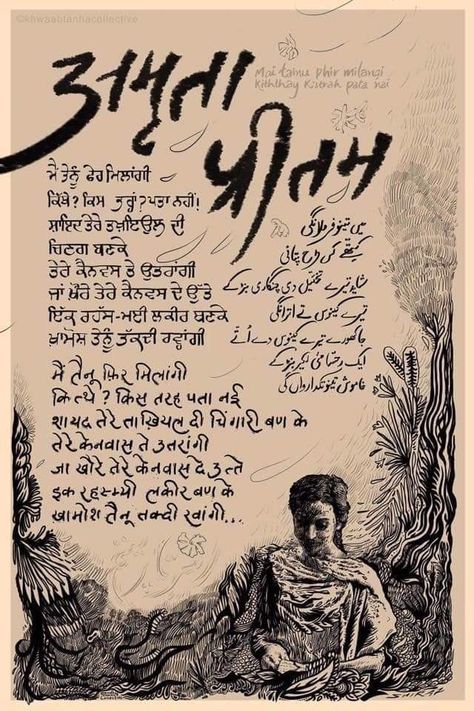 ©khwaabtanhacollective
अमृता
प्रीतम
Mai tainu phir milangi
Kiththay Kistrah pata nai
ਮੈਂ ਤੈਨੂੰ ਫੇਰ ਮਿਲਾਂਗੀ
ਕਿੱਥੇ? ਕਿਸ ਤਰ੍ਹਾਂ? ਪਤਾ ਨਹੀਂ!
ਸ਼ਾਇਦ ਤੇਰੇ ਤਖ਼ਇਉਲ ਦੀ
ਚਿਣਗ ਬਣਕੇ
ਤੇਰੇ ਕੈਨਵਸ ਤੇ ਉਤਰਾਂਗੀ
ਜਾਂ ਖ਼ੌਰੇ ਤੇਰੇ ਕੈਨਵਸ ਦੇ ਉੱਤੇ
ਇੱਕ ਰਹੱਸ-ਮਈ ਲਕੀਰ ਬਣਕੇ
ਖ਼ਾਮੋਸ਼ ਤੈਨੂੰ ਤੱਕਦੀ ਰਵ੍ਹਾਂਗੀ
میں تینو فر ملانگی
کتھے کس طرح پتا نی
شاید تیرے تخیل دی چنگاری بنڑ کے
تیرے کینوس تے اترانگی
جا کھورے تیرے کینوس دے اُتے
ایک رہسمئی لکیر بنڑ کے
خاموش تینو تکدی رواں گی
मैं तैनू फ़िर मिलांगी
कित्थे ? किस तरह पता नई
शायद तेरे ताखियल दी चिंगारी बण के
तेरे केनवास ते उतरांगी
जा खौरे तेरे केनवास दे उत्ते
इक रहस्म्यी लकीर बण के
खामोश तैनू तक्दी रवांगी...